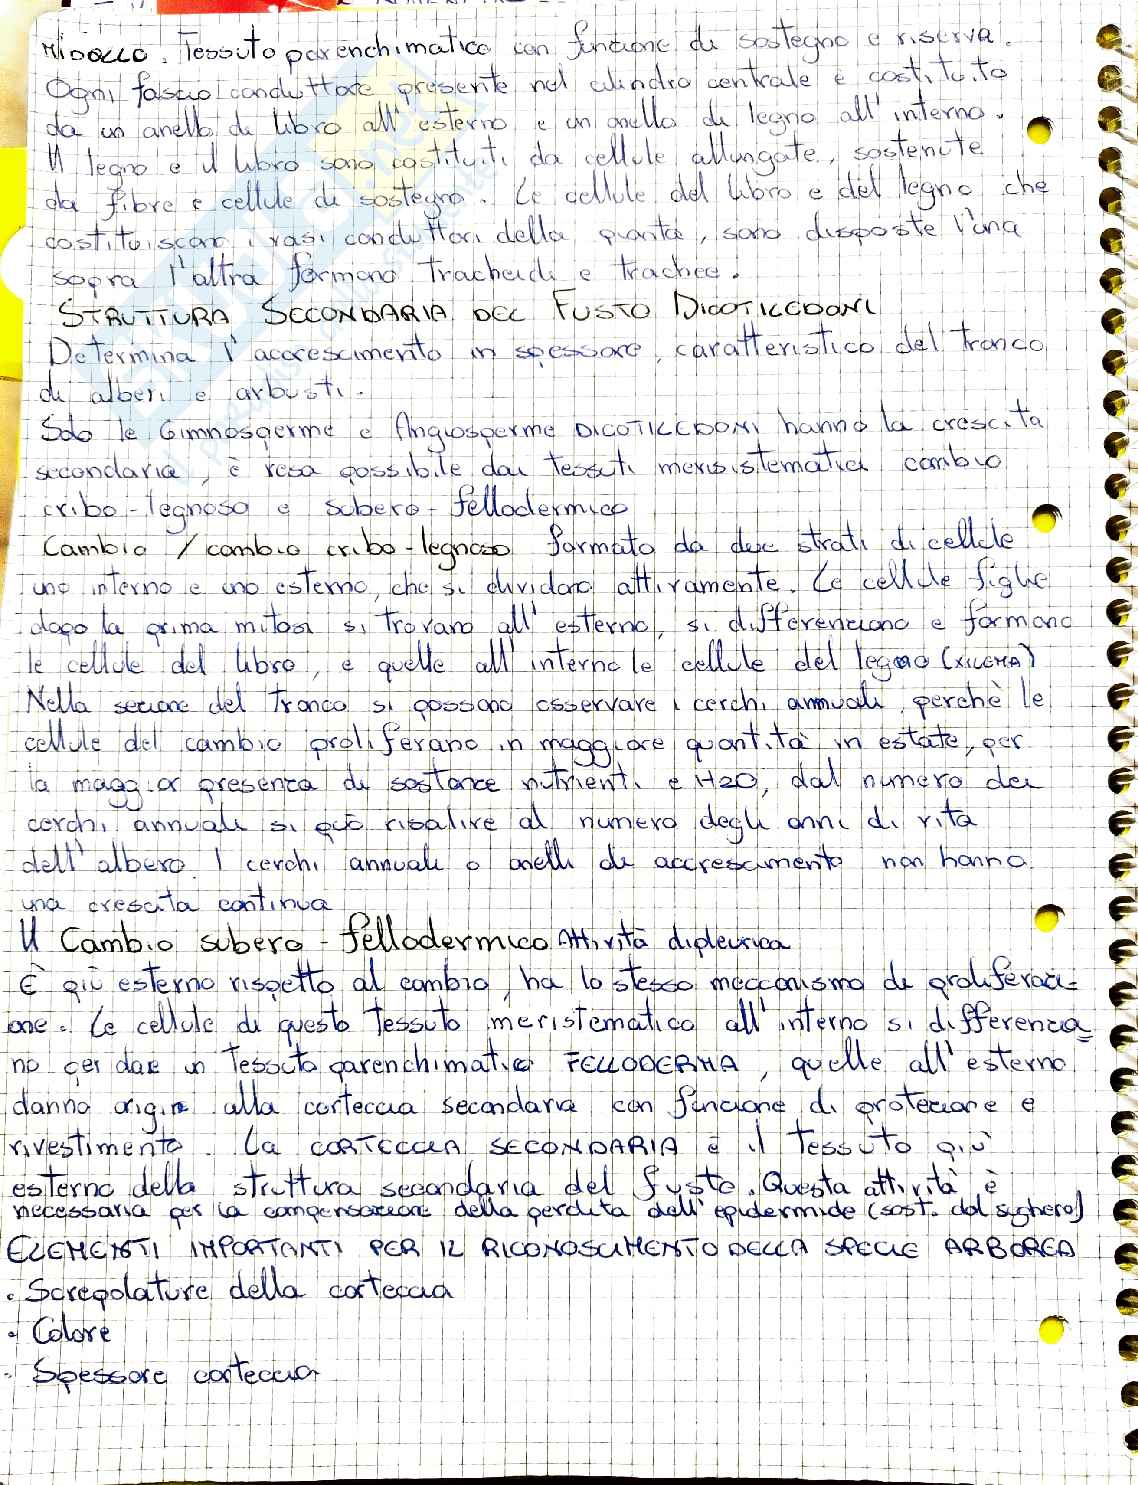 MIDOLLO. Tessuto parenchimatico con funzione di sostegno e riserva.
Ogni fascio conduttore presente nel cilindro centrale è costituito
da un anello di libro all'esterno e un anello di legno all'interno.
Il legno e il libro sono costituiti da cellule allungate, sostenute
da fibre e cellule di sostegno. Le cellule del libro e del legno che
costituiscono i vasi conduttori della pianta, sono disposte l'una
sopra l'altra formano tracheidi e trachee.
STRUTTURA SECONDARIA DEL FUSTO DICOTILEDONI
Determina l'accrescimento in spessore, caratteristico del tronco
di alberi e arbusti.
Solo le Gimnosperme e Angiosperme DICOTILEDONI hanno la crescita
secondaria, è resa possibile dai tessuti merisistematici cambio
cribo-legnoso e subero-fellodermico
Cambio / cambio cribo-legnoso formato da due strati di cellule
uno interno e uno esterno, che si dividono attivamente. Le cellule figlie
dopo la prima mitosi si trovano all'esterno, si differenziano e formano
le cellule del libro, e quelle all'interno le cellule del legno (XILEMA)
Nella sezione del tronco si possono osservare i cerchi annuali, perchè le
cellule del cambio proliferano in maggiore quantità in estate, per
la maggior presenza di sostanze nutrienti e H2O, dal numero dei
cerchi annuali si può risalire al numero degli anni di vita
dell'albero. I cerchi annuali o anelli di accrescimento non hanno
una crescita continua
Il Cambio subero-fellodermico Attività dipleurica
È più esterno rispetto al cambio, ha lo stesso meccanismo di proliferazi=
one. Le cellule di questo tessuto meristematico all'interno si differenzia=
no per dare un tessuto parenchimatico FELLODERMA, quelle all'esterno
danno origine alla corteccia secondaria con funzione di protezione e
rivestimento. La CORTECCIA SECONDARIA è il tessuto più
esterno della struttura secondaria del fusto. Questa attività è
necessaria per la compensazione della perdita dell'epidermide (sost. dal sughero)
ELEMENTI IMPORTANTI PER IL RICONOSCIMENTO DELLA SPECIE ARBOREA
• Screpolature della corteccia
• Colore
• Spessore corteccia